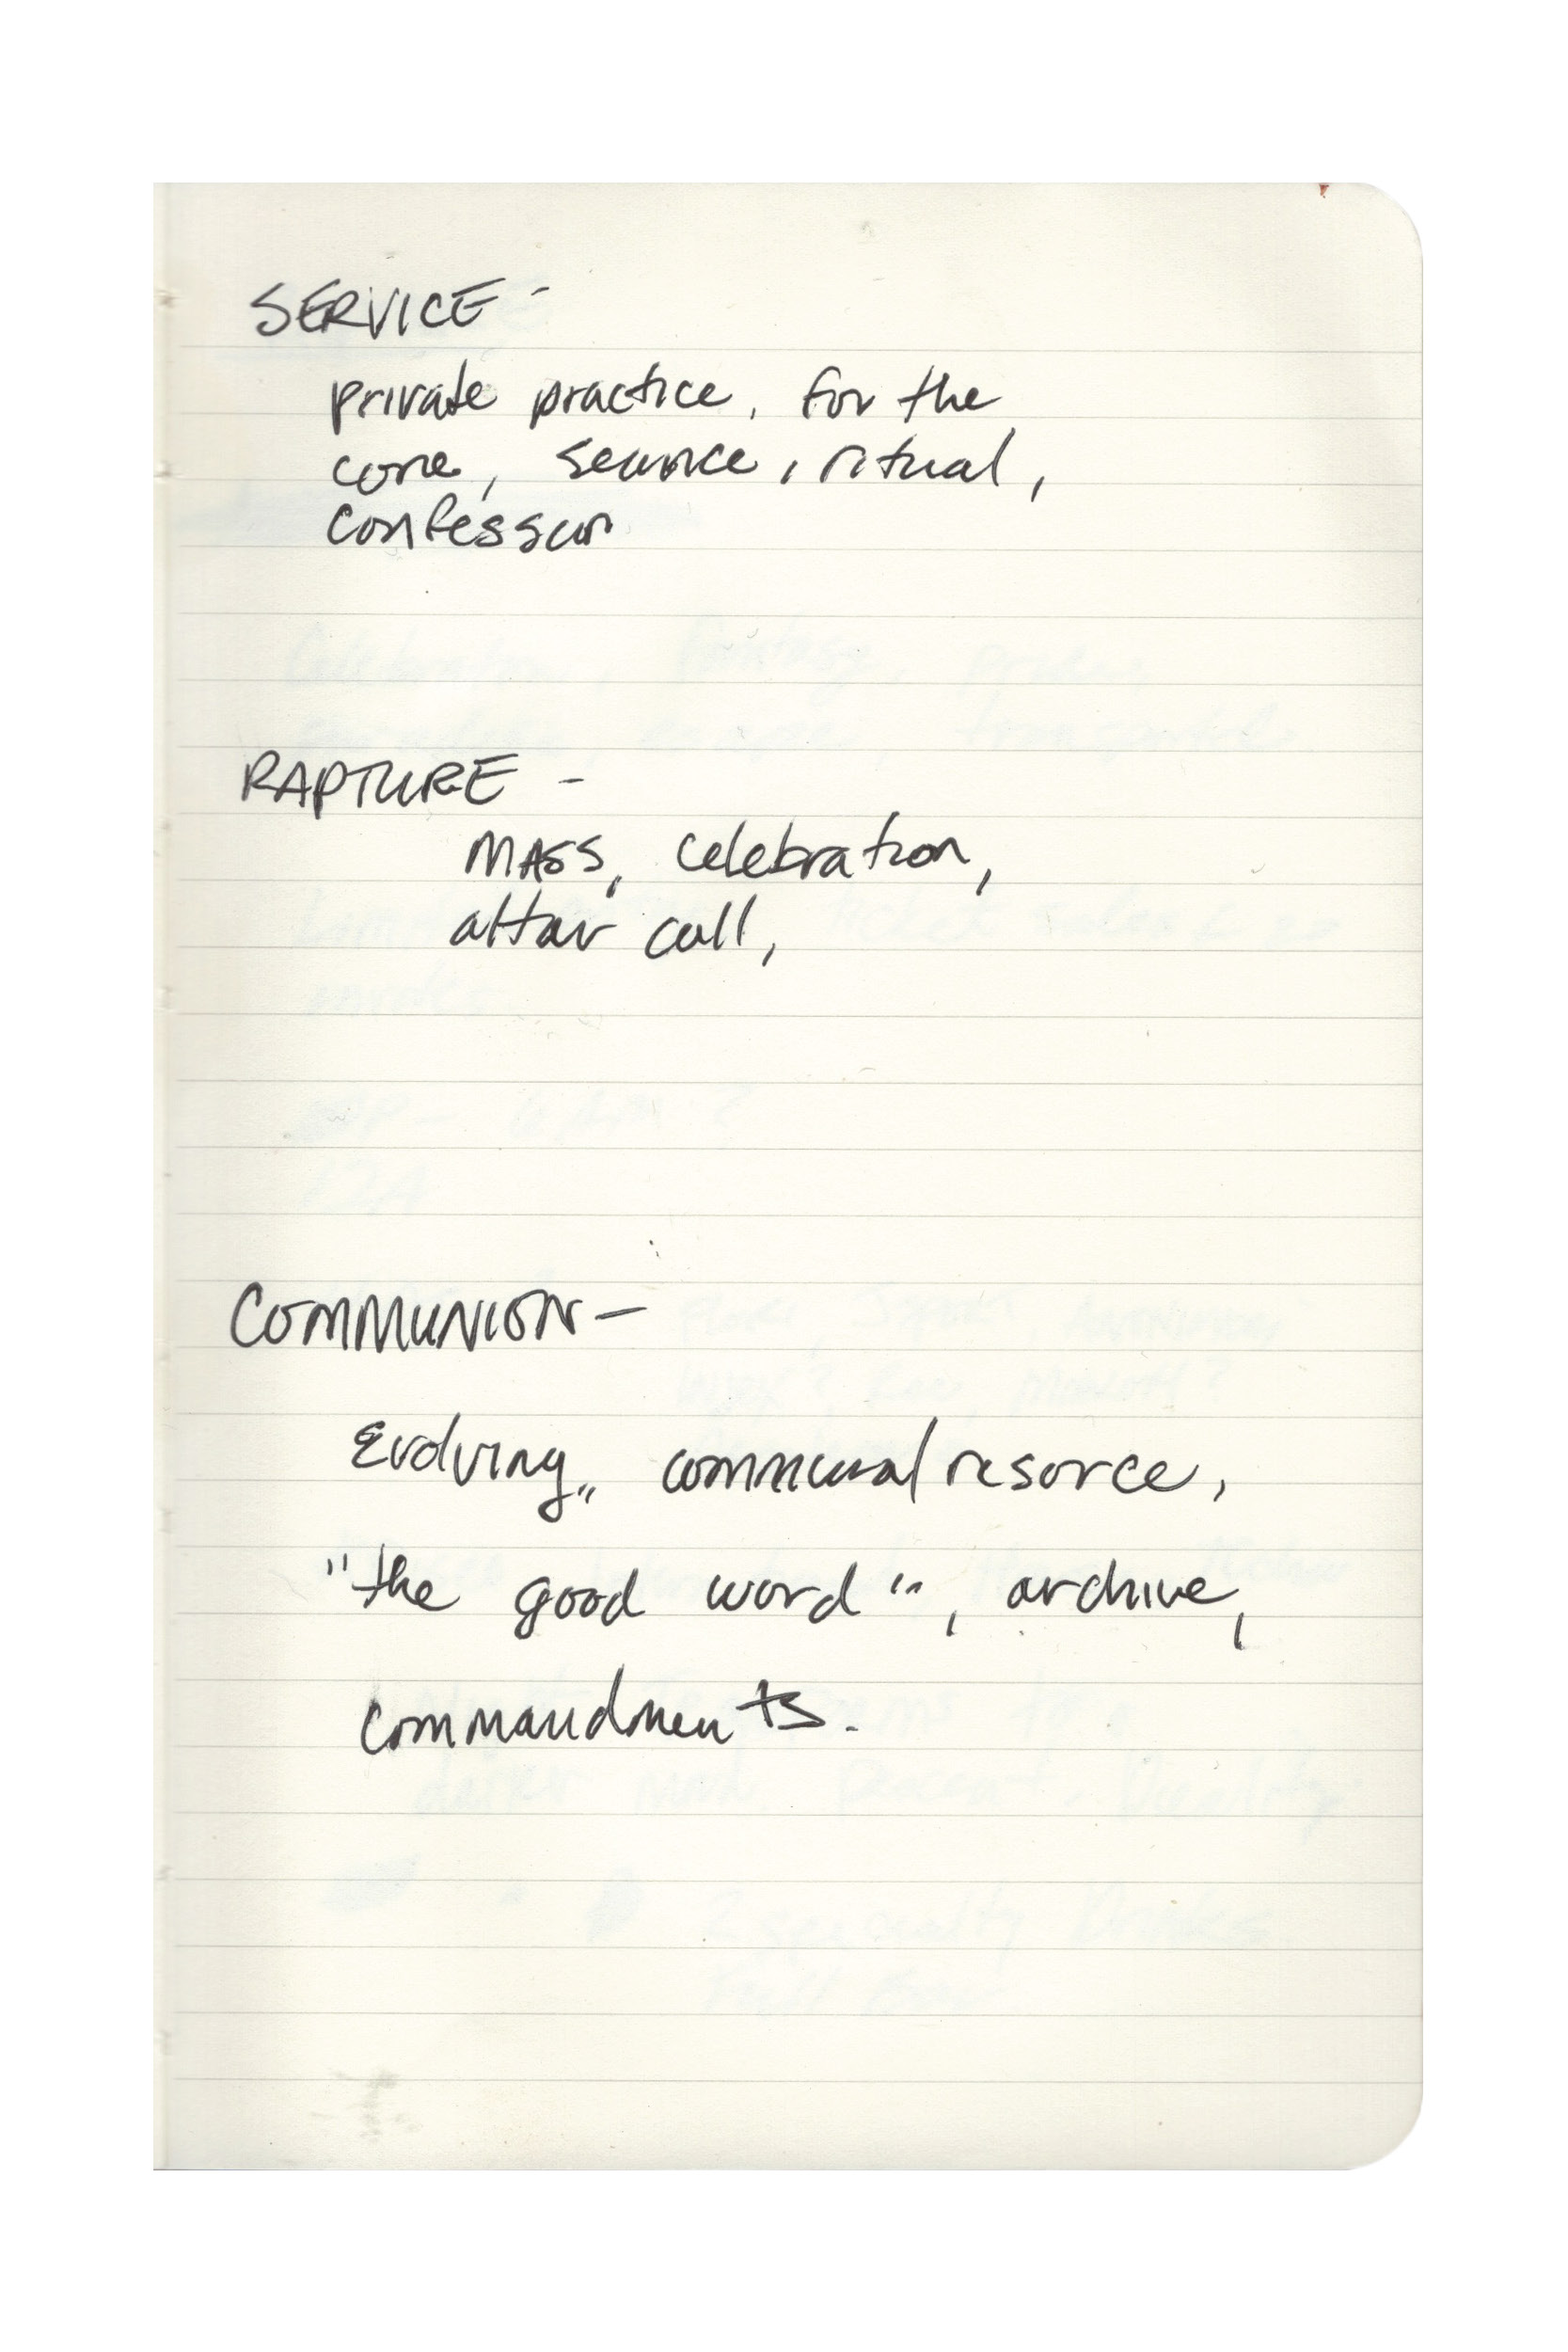 SERVICE -
private practice, for the
core, seance, ritual,
confessor
RAPTURE -
MASS, celebration,
altar call,
COMMUNION -
Evolving,, communal resorce,
"the good word", archive,
commandments.